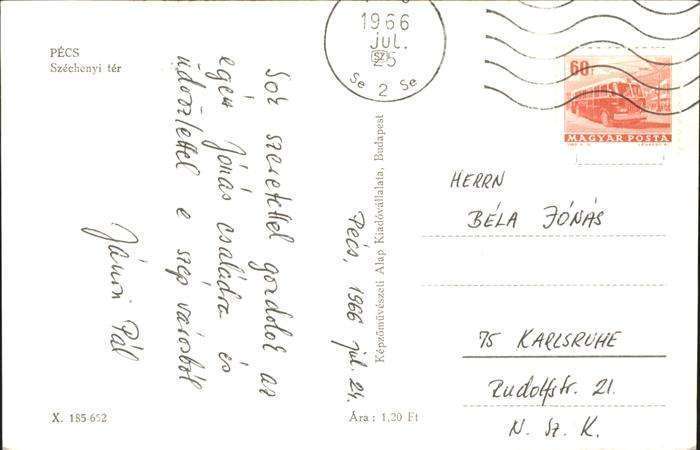 PÉCS
Széchenyi tér
Sok szeretettel gondolok az
egész Jónás családra és
üdvözlettel e szép városból
Pál
Pécs, 1966 júl. 24.
Képzőművészeti Alap Kiadóvállalata, Budapest
X. 185-652
Ára: 1,20 Ft
1966
JUL.
25
Se 2 Se
60f
MAGYAR POSTA
HERRN
BÉLA JÓNÁS
75 KARLSRUHE
Rudolfstr. 21.
N. Sz. K.